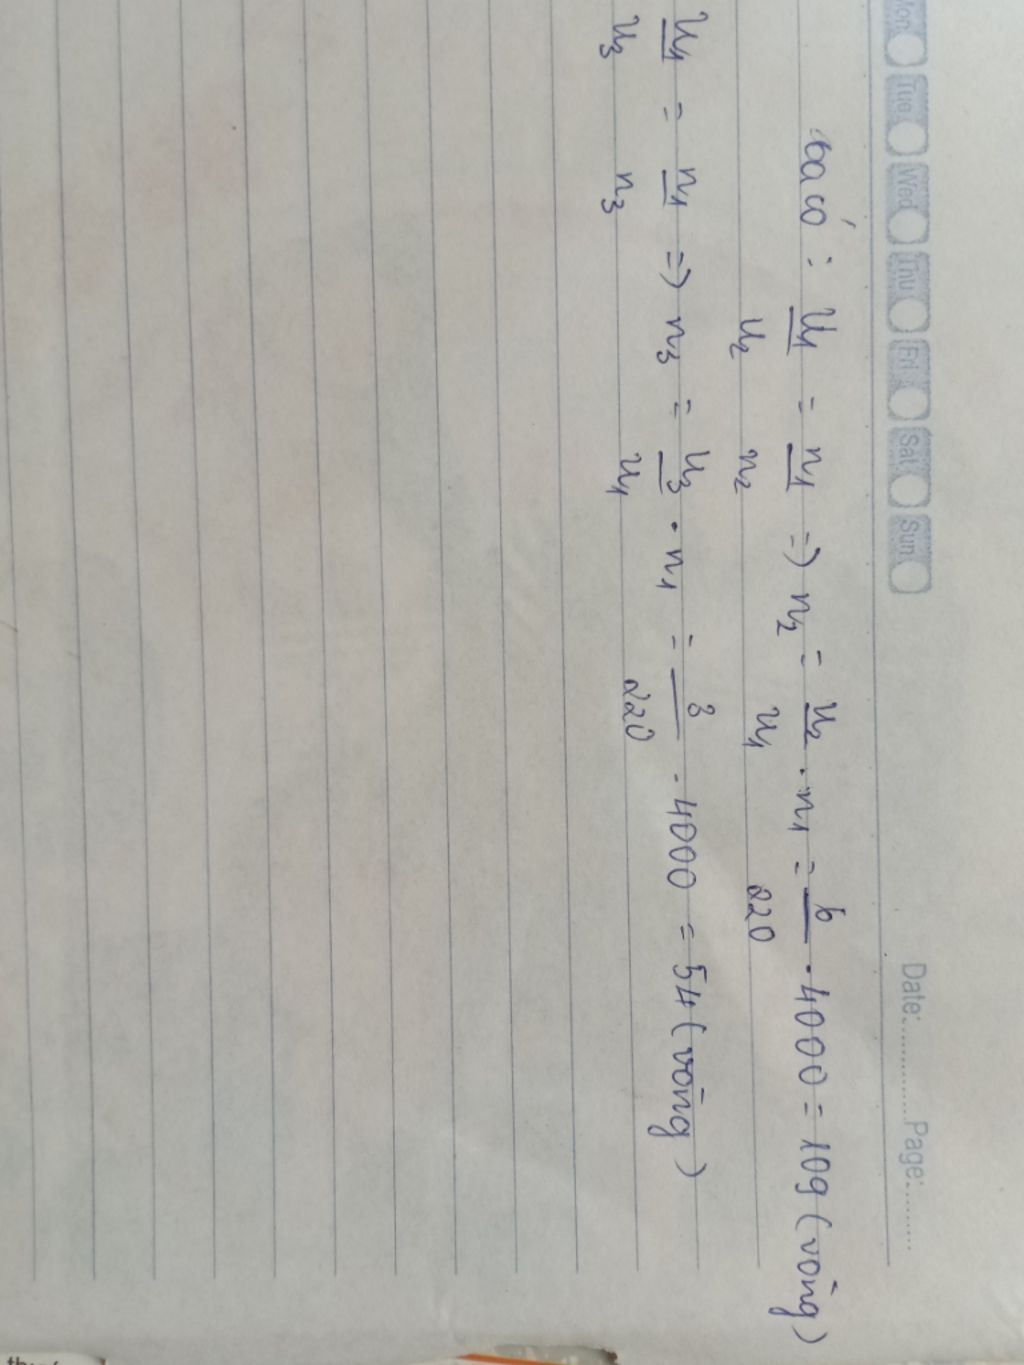 Mon Tue Wed Thu Fri Sat Sun Date:............Page:.........
Ta có : U1/U2 = n1/n2 => n2 = U2/U1 . n1 = 6/220 . 4000 = 109 (vòng)
U1/U3 = n1/n3 => n3 = U3/U1 . n1 = 3/220 . 4000 = 54 (vòng)